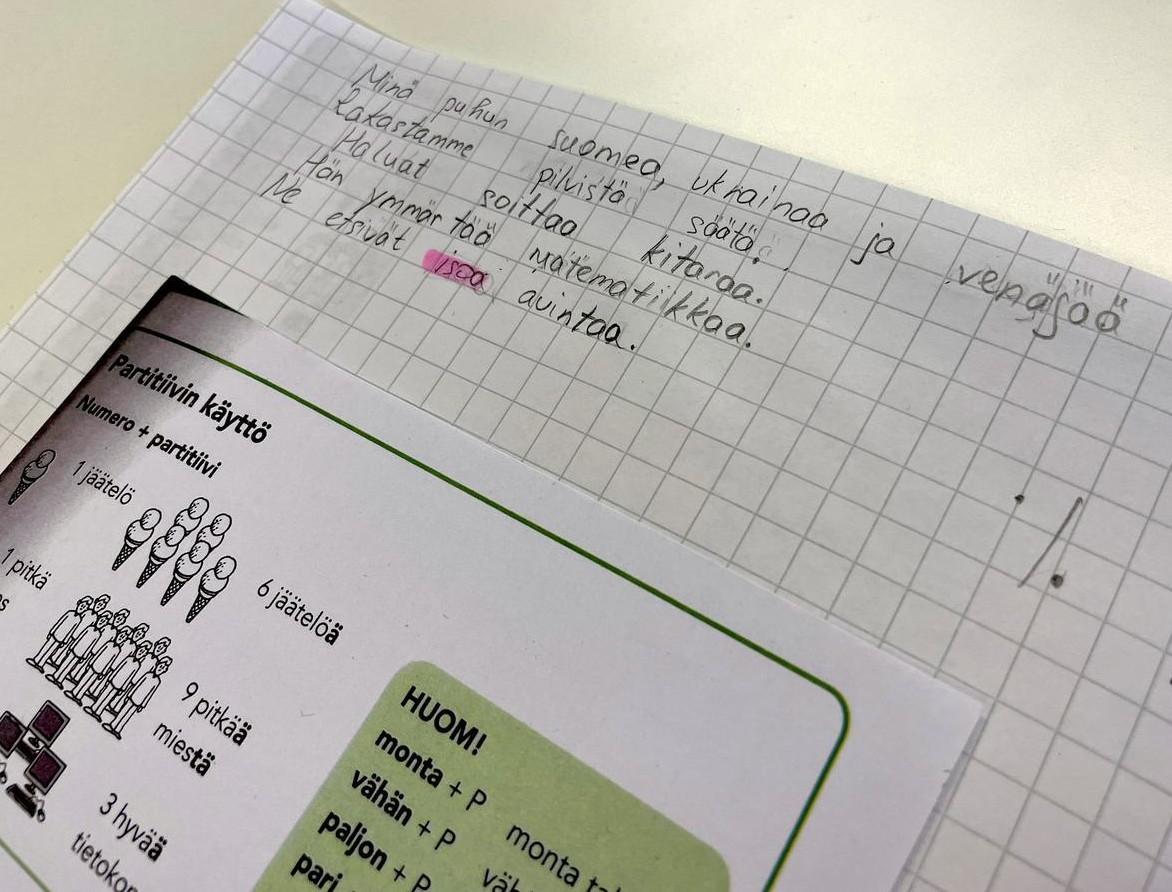 Minä puhun suomea, ukrainaa ja venäjää
Rakastamme pilvistä säätä.
Haluat soittaa kitaraa.
Hän ymmärtää matematiikkaa.
Ne etsivät isoa auintaa.
Partitiivin käyttö
Numero + partitiivi
1 jäätelö
6 jäätelöä
1 pitkä
9 pitkää
miestä
3 hyvää
HUOM!
monta + P
monta
vähän + P
paljon + P
pari